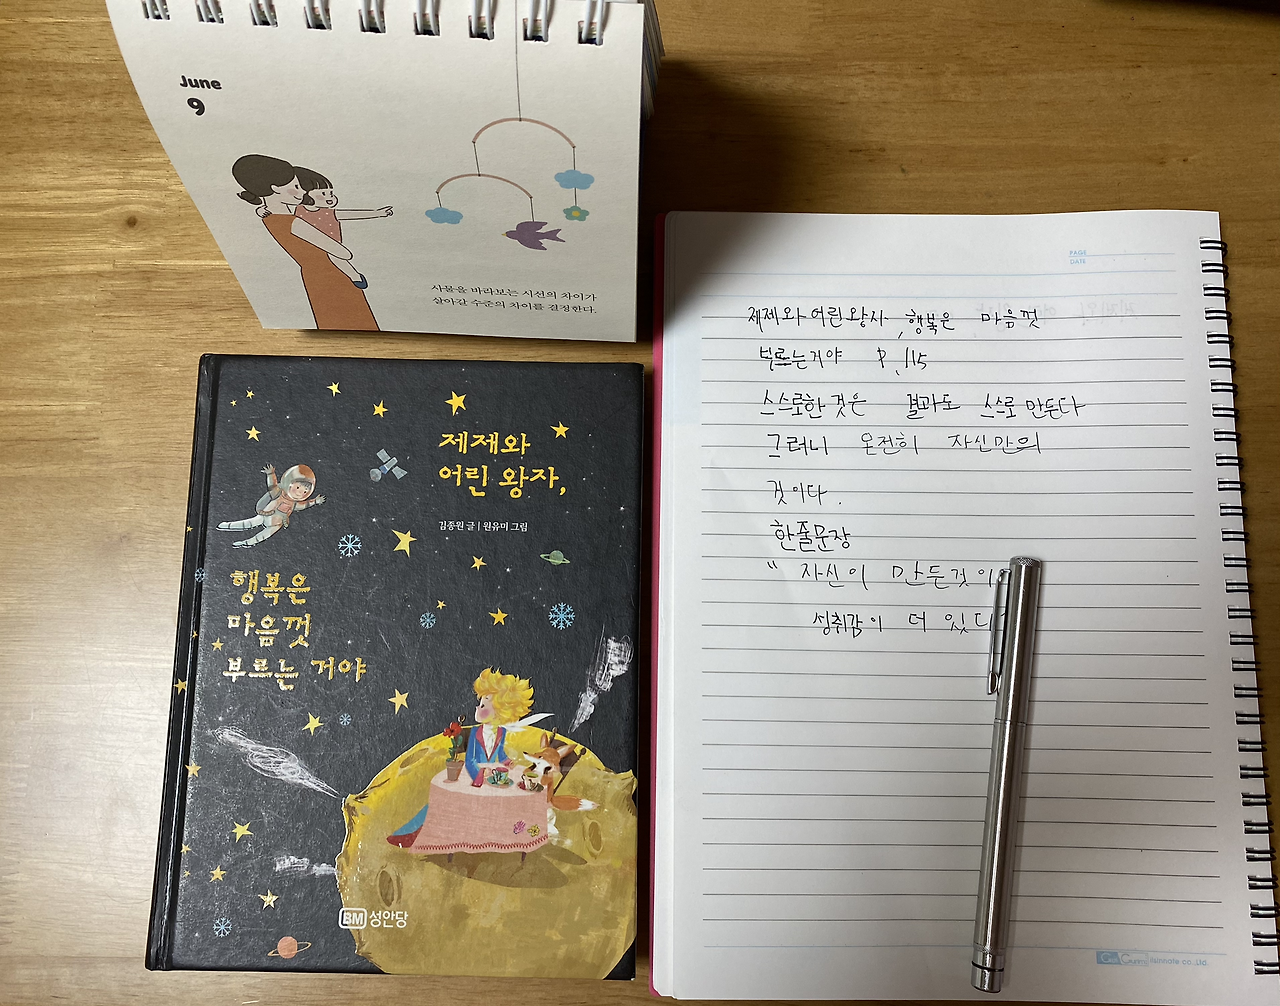 June
9
사물을 바라보는 시선의 차이가
살아갈 수준의 차이를 결정한다.
제제와
어린 왕자,
김종원 글 | 원유미 그림
행복은
마음껏
부르는 거야
BM 성안당
PAGE
DATE
제제와 어린왕자, 행복은 마음껏
부르는거야 P. 115
스스로한 것은 결과도 스스로 만든다
그러니 온전히 자신만의
것이다.
한줄문장
" 자신이 만든것이
성취감이 더 있다
ilsinnote co.,Ltd.